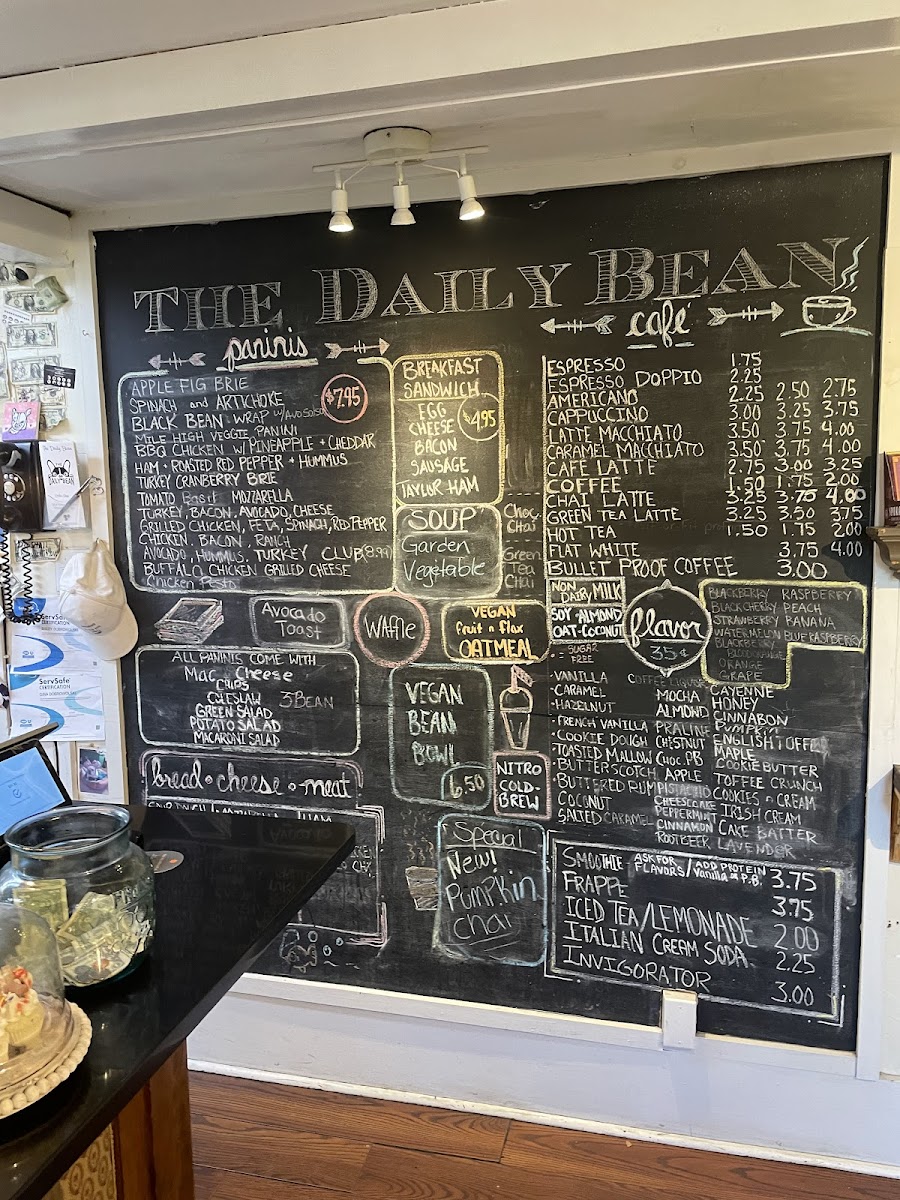 THE DAILY BEAN
paninis
APPLE FIG BRIE
SPINACH and ARTICHOKE
BLACK BEAN WRAP w/ AVO SALSA
MILE HIGH VEGGIE PANINI
BBQ CHICKEN W/PINEAPPLE + CHEDDAR
HAM + ROASTED RED PEPPER + HUMMUS
TURKEY CRANBERRY BRIE
TOMATO Basil MOZZARELLA
TURKEY, BACON, AVOCADO, CHEESE
GRILLED CHICKEN, FETA, SPINACH, RED PEPPER
CHICKEN, BACON, RANCH
AVOCADO, HUMMUS, TURKEY CLUB (8.99)
BUFFALO CHICKEN GRILLED CHEESE
Chicken Pesto
$7.95
BREAKFAST
SANDWICH
EGG
CHEESE
BACON
SAUSAGE
TAYLOR HAM
$4.95
SOUP
Garden
Vegetable
Choc.
Chai
Green
Tea
Chai
café
ESPRESSO 1.75
ESPRESSO DOPPIO 2.25
AMERICANO 2.25 2.50 2.75
CAPPUCCINO 3.00 3.25 3.75
LATTE MACCHIATO 3.50 3.75 4.00
CARAMEL MACCHIATO 3.50 3.75 4.00
CAFE LATTE 2.75 3.00 3.25
COFFEE 1.50 1.75 2.00
CHAI LATTE 3.25 3.75 4.00
GREEN TEA LATTE 3.25 3.50 3.75
HOT TEA 1.50 1.75 2.00
FLAT WHITE 3.75 4.00
BULLET PROOF COFFEE 3.00
Avocado
Toast
WAffle
VEGAN
fruit n flax
OATMEAL
NON DAIRY MILK
SOY ALMOND
OAT-COCONUT
flavor
35¢
BLACKBERRY RASPBERRY
BLACKCHERRY PEACH
STRAWBERRY BANANA
WATERMELON BLUE RASPBERRY
BLACKBERRY
BLOOD ORANGE
ORANGE
GRAPE
ALL PANINIS COME WITH
Mac n cheese
CHIPS
COLESLAW
3 BEAN
GREEN SALAD
POTATO SALAD
MACARONI SALAD
VEGAN
BEAN
BOWL
6.50
NITRO
COLD-
BREW
· SUGAR
FREE
·VANILLA
·CARAMEL
·HAZELNUT
·FRENCH VANILLA
·COOKIE DOUGH
·TOASTED MALLOW
·BUTTERSCOTCH
·BUTTERED RUM
COCONUT
SALTED CARAMEL
MOCHA
ALMOND
PRALINE
CHESTNUT
CHOC. PB
APPLE
PISTACHIO
CHEESECAKE
PEPPERMINT
CINNAMON
ROOTBEER
CAYENNE
HONEY
CINNABON
PUMPKIN
ENGLISH TOFFEE
MAPLE
COOKIE BUTTER
TOFFEE CRUNCH
COOKIES n CREAM
IRISH CREAM
CAKE BATTER
LAVENDER
bread · cheese · meat
HAM
Special
New!
Pumpkin
chai
SMOOTHIE ASK FOR FLAVORS / ADD PROTEIN Vanilla + P.B. 3.75
FRAPPE 3.75
ICED TEA/LEMONADE 2.00
ITALIAN CREAM SODA 2.25
INVIGORATOR 3.00
The Daily Bean
ServSafe
CERTIFICATION
ServSafe
CERTIFICATION